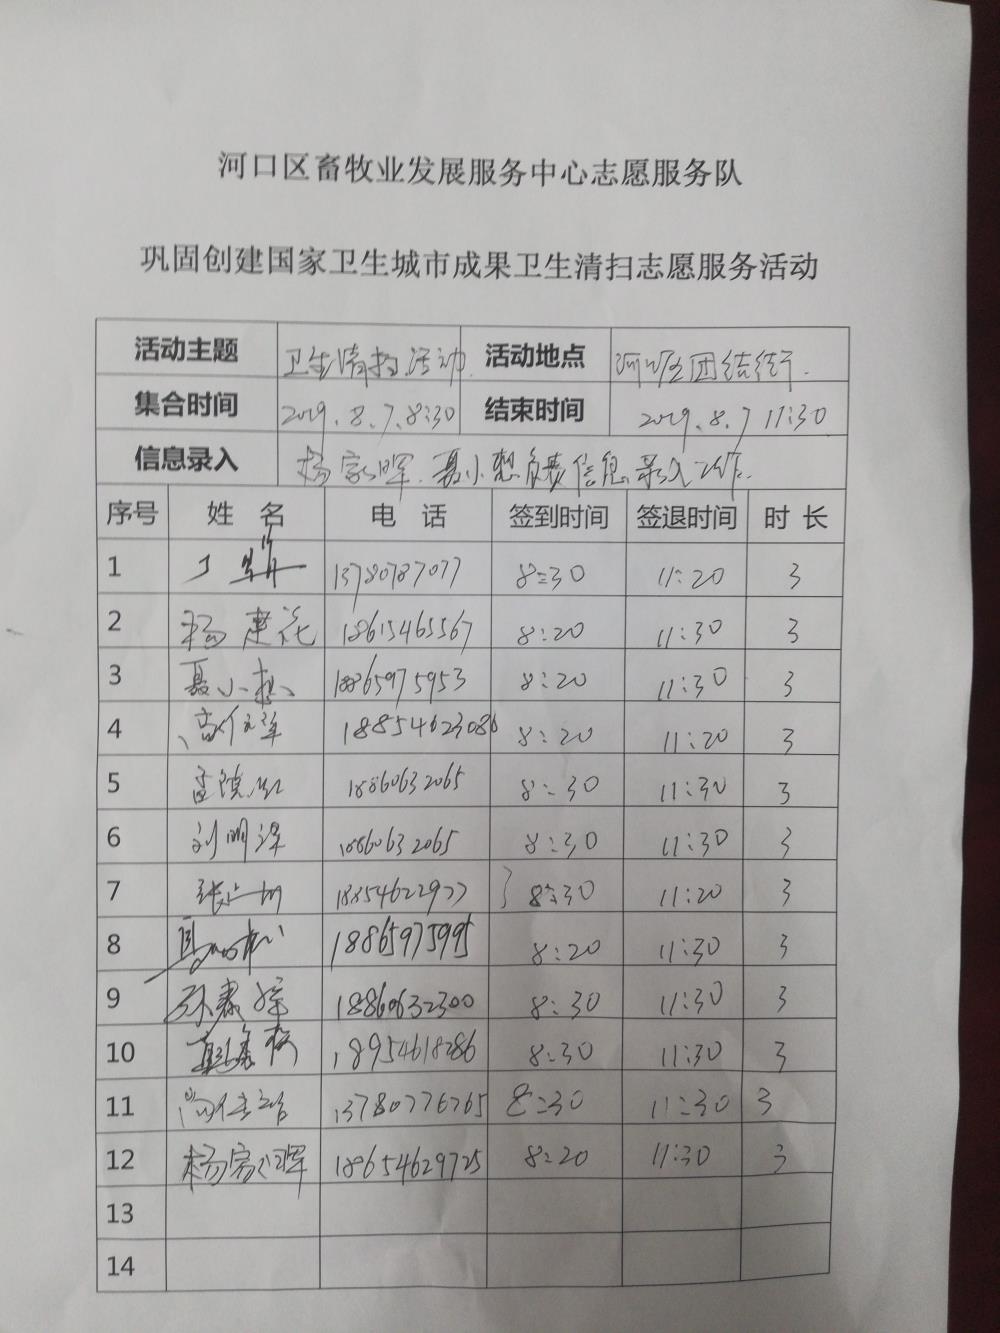 河口区畜牧业发展服务中心志愿服务队
巩固创建国家卫生城市成果卫生清扫志愿服务活动
活动主题 卫生清扫活动 活动地点 河口区团结街.
集合时间 2019.8.7.8:30 结束时间 2019.8.7 11:30
信息录入 杨家晖.聂小想负责信息录入工作.
序号 姓 名 电 话 签到时间 签退时间 时 长
1 13780787077 8:30 11:20 3
2 杨建花 18615465567 8:20 11:30 3
3 聂小想 18865975953 8:20 11:30 3
4 18854623086 8:20 11:20 3
5 18860632065 8:30 11:30 3
6 刘明 18860632065 8:30 11:30 3
7 18854622977 8:30 11:20 3
8 18865975995 8:20 11:30 3
9 18860632300 8:30 11:30 3
10 18954618286 8:30 11:30 3
11 13780776765 8:30 11:30 3
12 杨家晖 18654629725 8:20 11:30 3
13
14